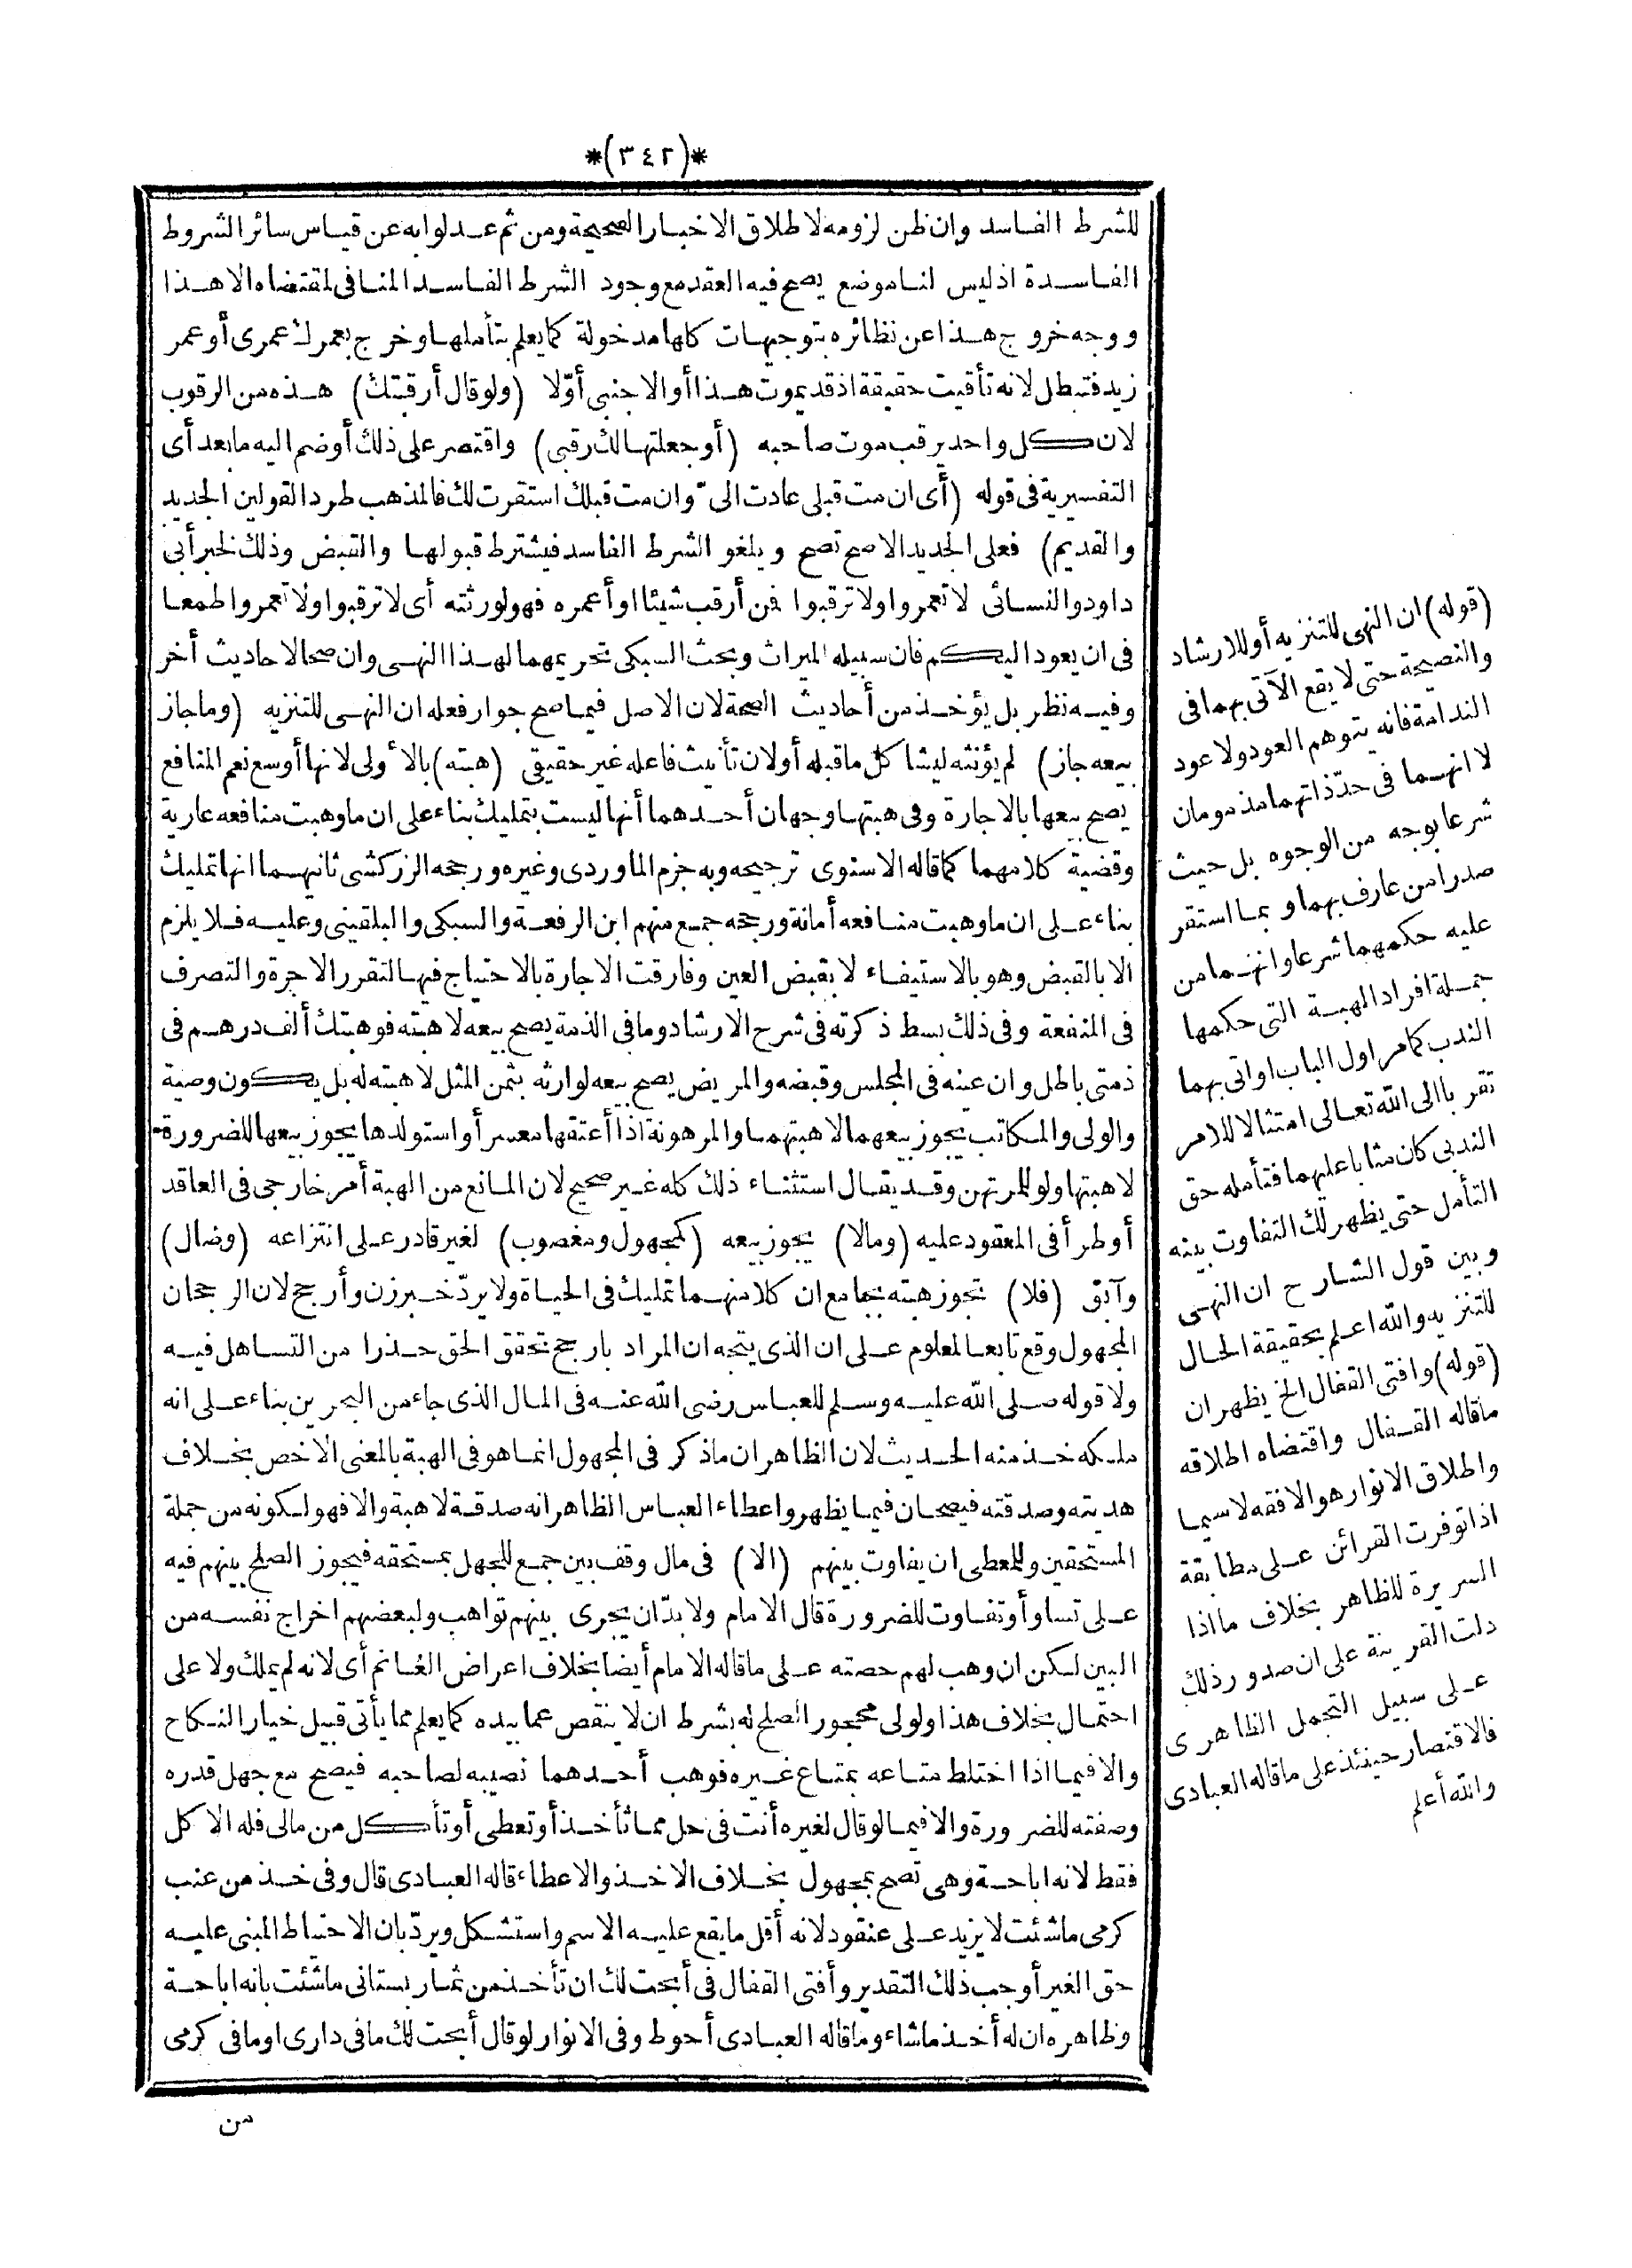 *(٣٤٢)*
للشرط الفاسد وان ظن لزومه لاطلاق الاخبار الصحيحة ومن ثم عدلوا به عن قياس سائر الشروط
الفاسدة اذ ليس لنا موضع يصح فيه العقد مع وجود الشرط الفاسد المنافى لمقتضاه الا هذا
ووجه خروج هذا عن نظائره بتوجيهات كلها مدخولة كما يعلم بتأملها وخرج بعمرك عمرى أو عمر
زيد فتبطل لانه تأقيت حقيقة اذ قد يموت هذا أو الاجنبى أوّلا (ولو قال أرقبتك) هذه من الرقوب
لان كل واحد يرقب موت صاحبه (أو جعلتها لك رقبى) واقتصر على ذلك أو ضم اليه ما بعد أى
التفسيرية فى قوله (أى ان مت قبلى عادت الىّ وان مت قبلك استقرت لك فالمذهب طرد القولين الجديد
والقديم) فعلى الجديد الاصح تصح ويلغو الشرط الفاسد فيشترط قبولها والقبض وذلك لخبر أبى
داود والنسائى لا تعمروا ولا ترقبوا فمن أرقب شيئا او أعمره فهو لورثته أى لا ترقبوا ولا تعمروا طمعا
فى ان يعود اليكم فان سبيله الميراث وبحث السبكى تحريمهما لهذا النهى وان صحا لاحاديث أخر
وفيه نظر بل يؤخذ من أحاديث الصحة لان الاصل فيما صح جواز فعله ان النهى للتنزيه (وما جاز
بيعه جاز) لم يؤنثه ليشاكل ما قبله أو لان تأنيث فاعله غير حقيقى (هبته) بالأولى لانها أوسع نعم المنافع
يصح بيعها بالاجارة وفى هبتها وجهان أحدهما أنها ليست بتمليك بناء على ان ما وهبت منافعه عارية
وقضية كلامهما كما قاله الاسنوى ترجيحه وبه جزم الماوردى وغيره ورجحه الزركشى ثانيهما انها تمليك
بناء على ان ما وهبت منافعه أمانة ورجحه جمع منهم ابن الرفعة والسبكى والبلقينى وعليه فلا يلزم
الا بالقبض وهو بالاستيفاء لا بقبض العين وفارقت الاجارة بالاحتياج فيها لتقرر الاجرة والتصرف
فى المنفعة وفى ذلك بسط ذكرته فى شرح الارشاد وما فى الذمة يصح بيعه لا هبته فوهبتك ألف درهم فى
ذمتى باطل وان عينه فى المجلس وقبضه والمريض يصح بيعه لوارثه بثمن المثل لا هبته له بل يكون وصية
والولى والمكاتب يجوز بيعهما لا هبتهما والمرهونة اذا أعتقها معسر أو استولدها يجوز بيعها للضرورة
لا هبتها ولو للمرتهن وقد يقال استثناء ذلك كله غير صحيح لان المانع من الهبة أمر خارجى فى العاقد
أو طرأ فى المعقود عليه (وما لا) يجوز بيعه (كمجهول ومغصوب) لغير قادر على انتزاعه (وضال)
وآبق (فلا) تجوز هبته بجامع ان كلا منهما تمليك فى الحياة ولا يردّ خبر زن وأرجح لان الرجحان
المجهول وقع تابعا لمعلوم على ان الذى يتجه ان المراد بارجح تحقق الحق حذرا من التساهل فيه
ولا قوله صلى الله عليه وسلم للعباس رضى الله عنه فى المال الذى جاء من البحرين بناء على انه
ملكه خذ منه الحديث لان الظاهر ان ما ذكر فى المجهول انما هو فى الهبة بالمعنى الاخص بخلاف
هديته وصدقته فيصحان فيما يظهر واعطاء العباس الظاهر انه صدقة لا هبة والا فهو لكونه من جملة
المستحقين وللمعطى ان يفاوت بينهم (الا) فى مال وقف بين جمع للجهل بمستحقه فيجوز الصلح بينهم فيه
على تساو أو تفاوت للضرورة قال الامام ولا بدّ ان يجرى بينهم تواهب ولبعضهم اخراج نفسه من
البين لكن ان وهب لهم حصته على ما قاله الامام أيضا بخلاف اعراض الغانم أى لانه لم يملك ولا على
احتمال بخلاف هذا ولولى محجور الصلح له بشرط ان لا ينقص عما بيده كما يعلم مما يأتى قبيل خيار النكاح
والا فيما اذا اختلط متاعه بمتاع غيره فوهب أحدهما نصيبه لصاحبه فيصح مع جهل قدره
وصفته للضرورة والا فيما لو قال لغيره أنت فى حل مما تأخذ أو تعطى أو تأكل من مالى فله الاكل
فقط لانه اباحة وهى تصح بمجهول بخلاف الاخذ والاعطاء قاله العبادى قال وفى خذ من عنب
كرمى ما شئت لا يزيد على عنقود لانه أقل ما يقع عليه الاسم واستشكل ويردّ بان الاحتياط المبنى عليه
حق الغير أوجب ذلك التقدير وأفتى القفال فى أبحت لك ان تأخذ من ثمار بستانى ما شئت بانه اباحة
وظاهره ان له أخذ ما شاء وما قاله العبادى أحوط وفى الانوار لو قال أبحت لك ما فى دارى او ما فى كرمى
من
(قوله) ان النهى للتنزيه أو للارشاد
والنصيحة حتى لا يقع الآتى بهما فى
الندامة فانه يتوهم العود ولا عود
لا انهما فى حدّ ذاتهما مذمومان
شرعا بوجه من الوجوه بل حيث
صدرا من عارف بهما وبما استقر
عليه حكمهما شرعا وانهما من
جملة افراد الهبة التى حكمها
الندب كما مر اول الباب او اتى بهما
تقربا الى الله تعالى امتثالا للامر
الندبى كان مثابا عليهما فتأمله حق
التأمل حتى يظهر لك التفاوت بينه
وبين قول الشارح ان النهى
للتنزيه والله اعلم بحقيقة الحال
(قوله) وافتى القفال الخ يظهر ان
ما قاله القفال واقتضاه اطلاقه
واطلاق الانوار هو الافقه لا سيما
اذا توفرت القرائن على مطابقة
السريرة للظاهر بخلاف ما اذا
دلت القرينة على ان صدور ذلك
على سبيل التجمل الظاهرى
فالاقتصار حينئذ على ما قاله العبادى
والله أعلم